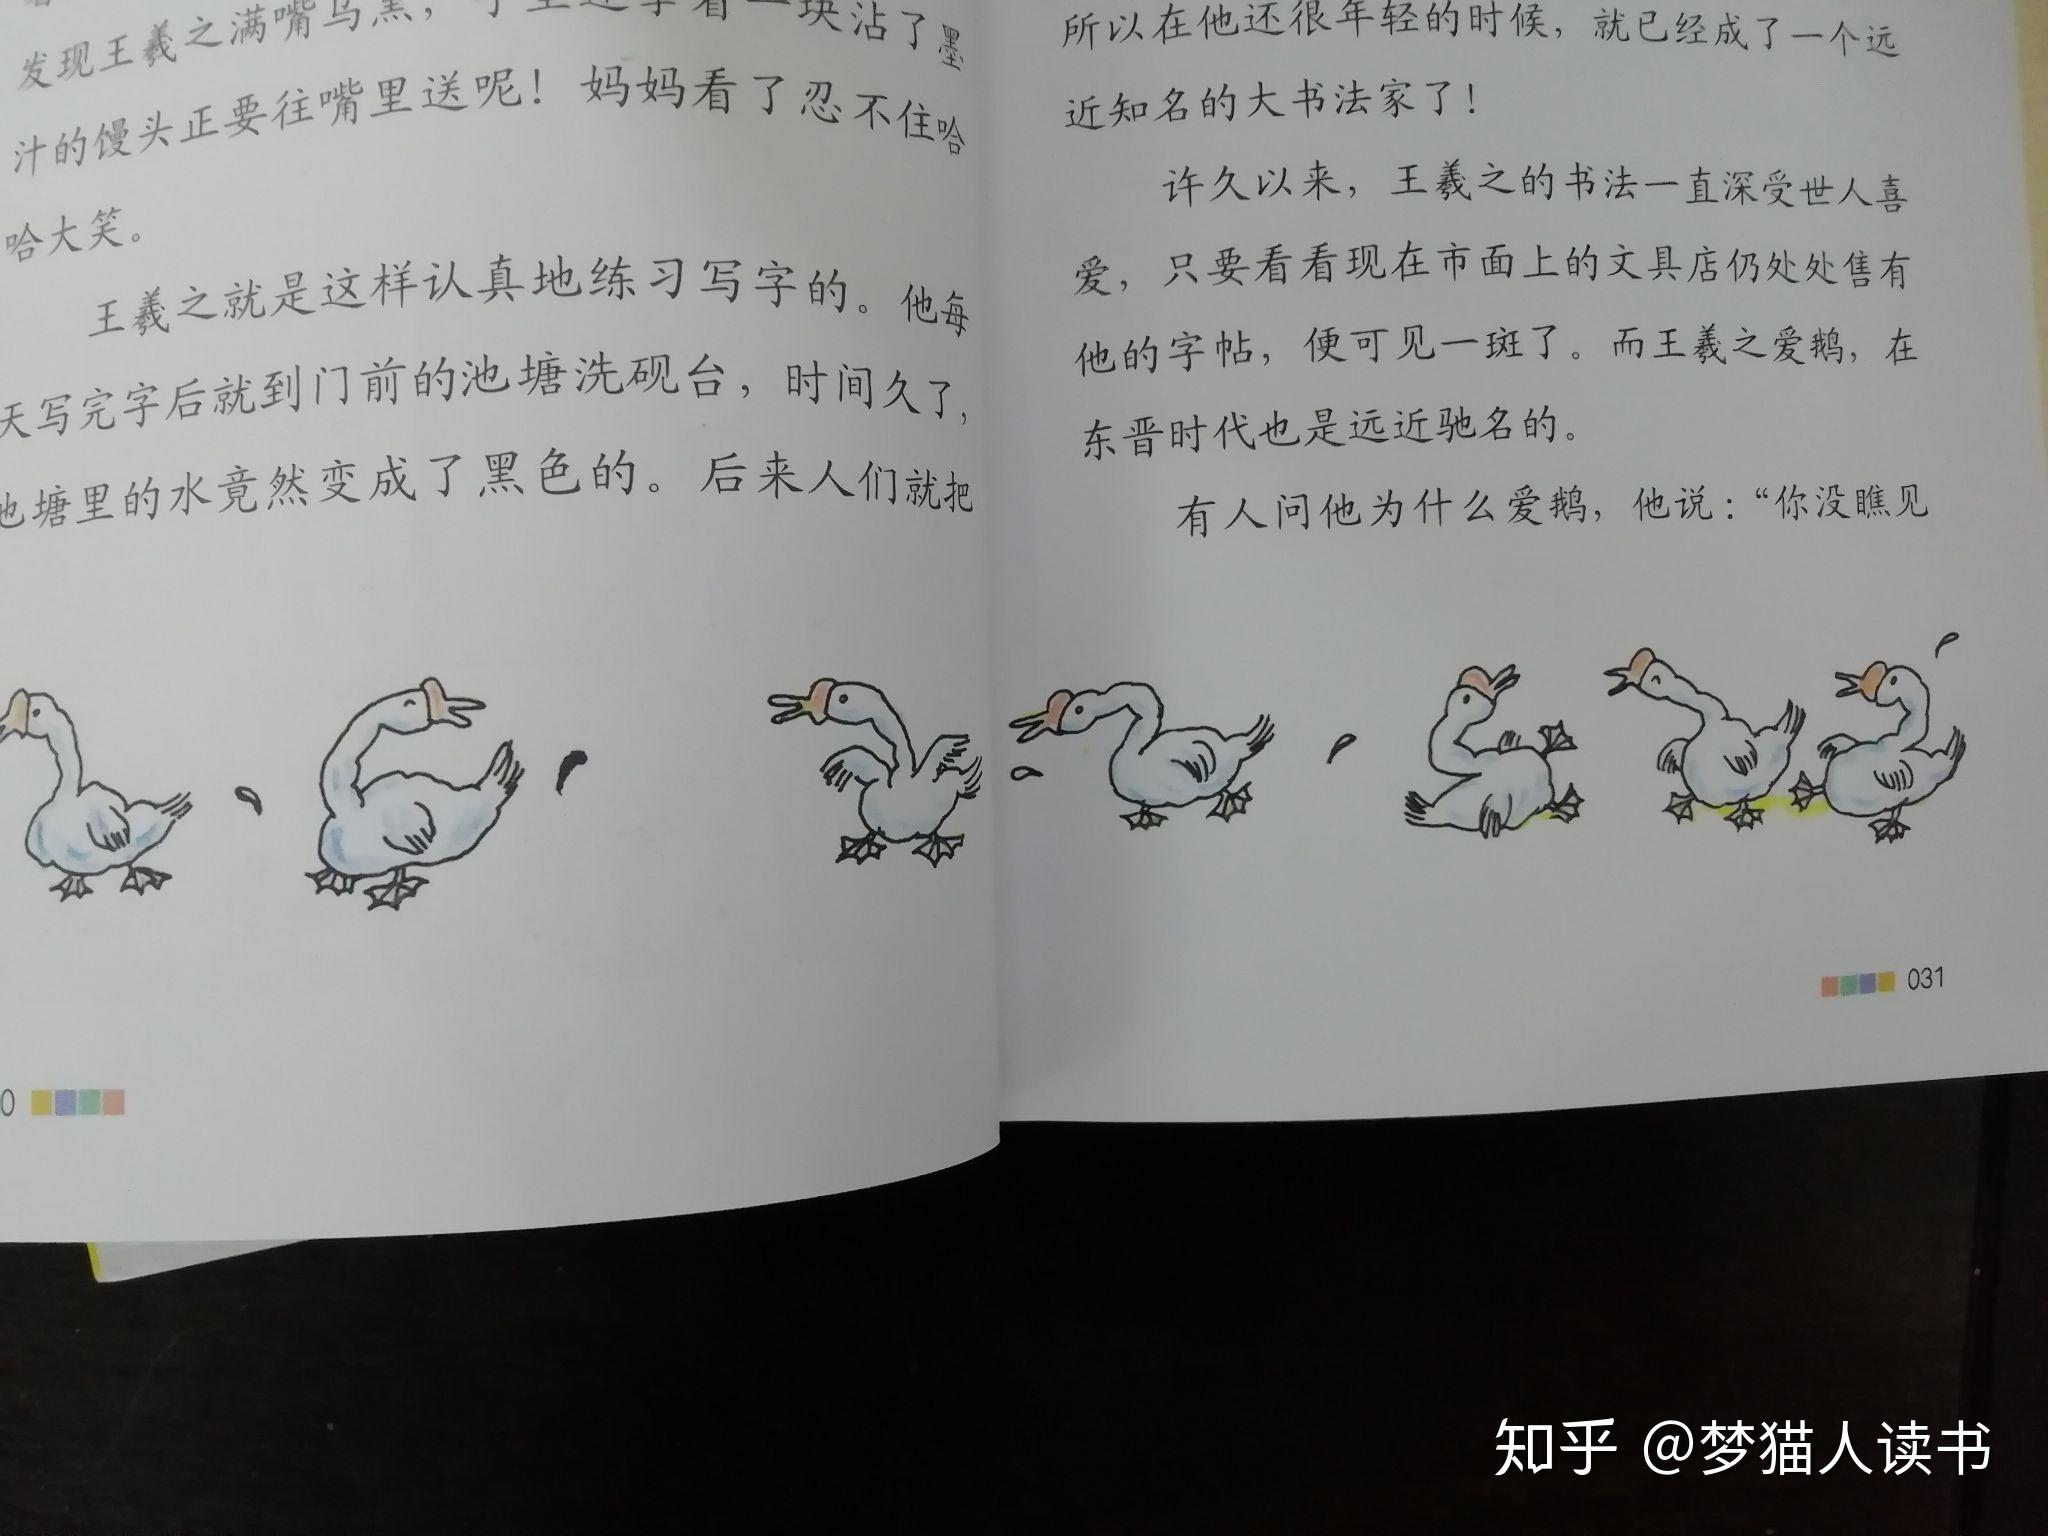 发现王羲之满嘴乌黑，手里还拿着一块沾了墨
汁的馒头正要往嘴里送呢！妈妈看了忍不住哈
哈大笑。
王羲之就是这样认真地练习写字的。他每
天写完字后就到门前的池塘洗砚台，时间久了，
池塘里的水竟然变成了黑色的。后来人们就把
0
所以在他还很年轻的时候，就已经成了一个远
近知名的大书法家了！
许久以来，王羲之的书法一直深受世人喜
爱，只要看看现在市面上的文具店仍处处售有
他的字帖，便可见一斑了。而王羲之爱鹅，在
东晋时代也是远近驰名的。
有人问他为什么爱鹅，他说：“你没瞧见
031
知乎 @梦猫人读书